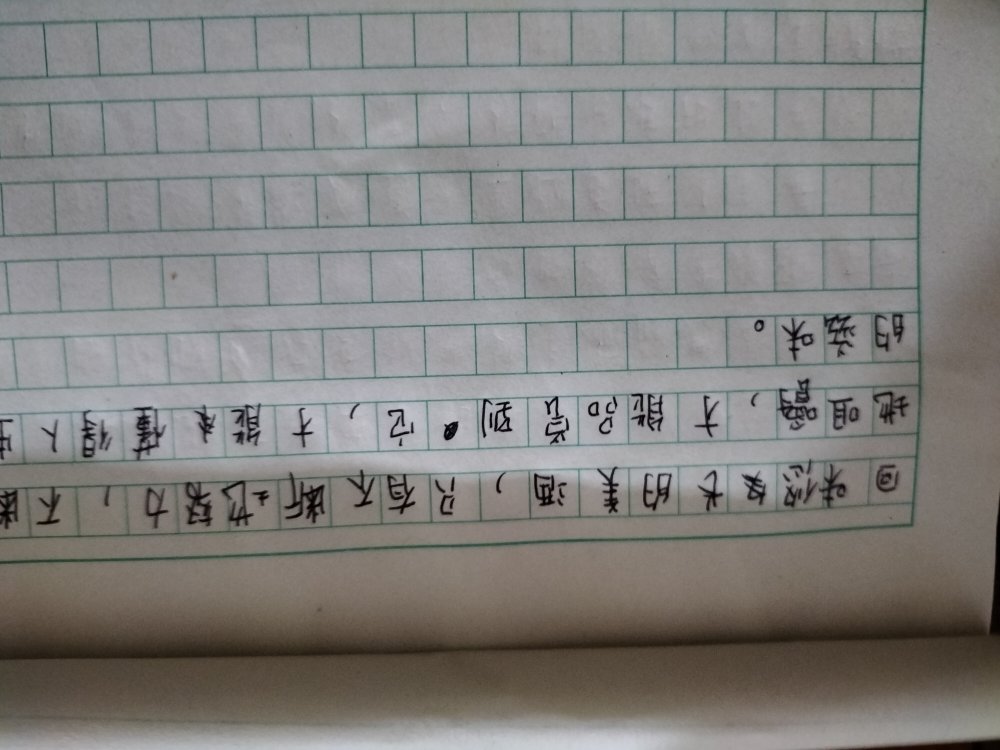 回味悠长的美酒,只有不断地努力,不断
地咀嚼,才能品尝到它,才能懂得人生
的滋味。